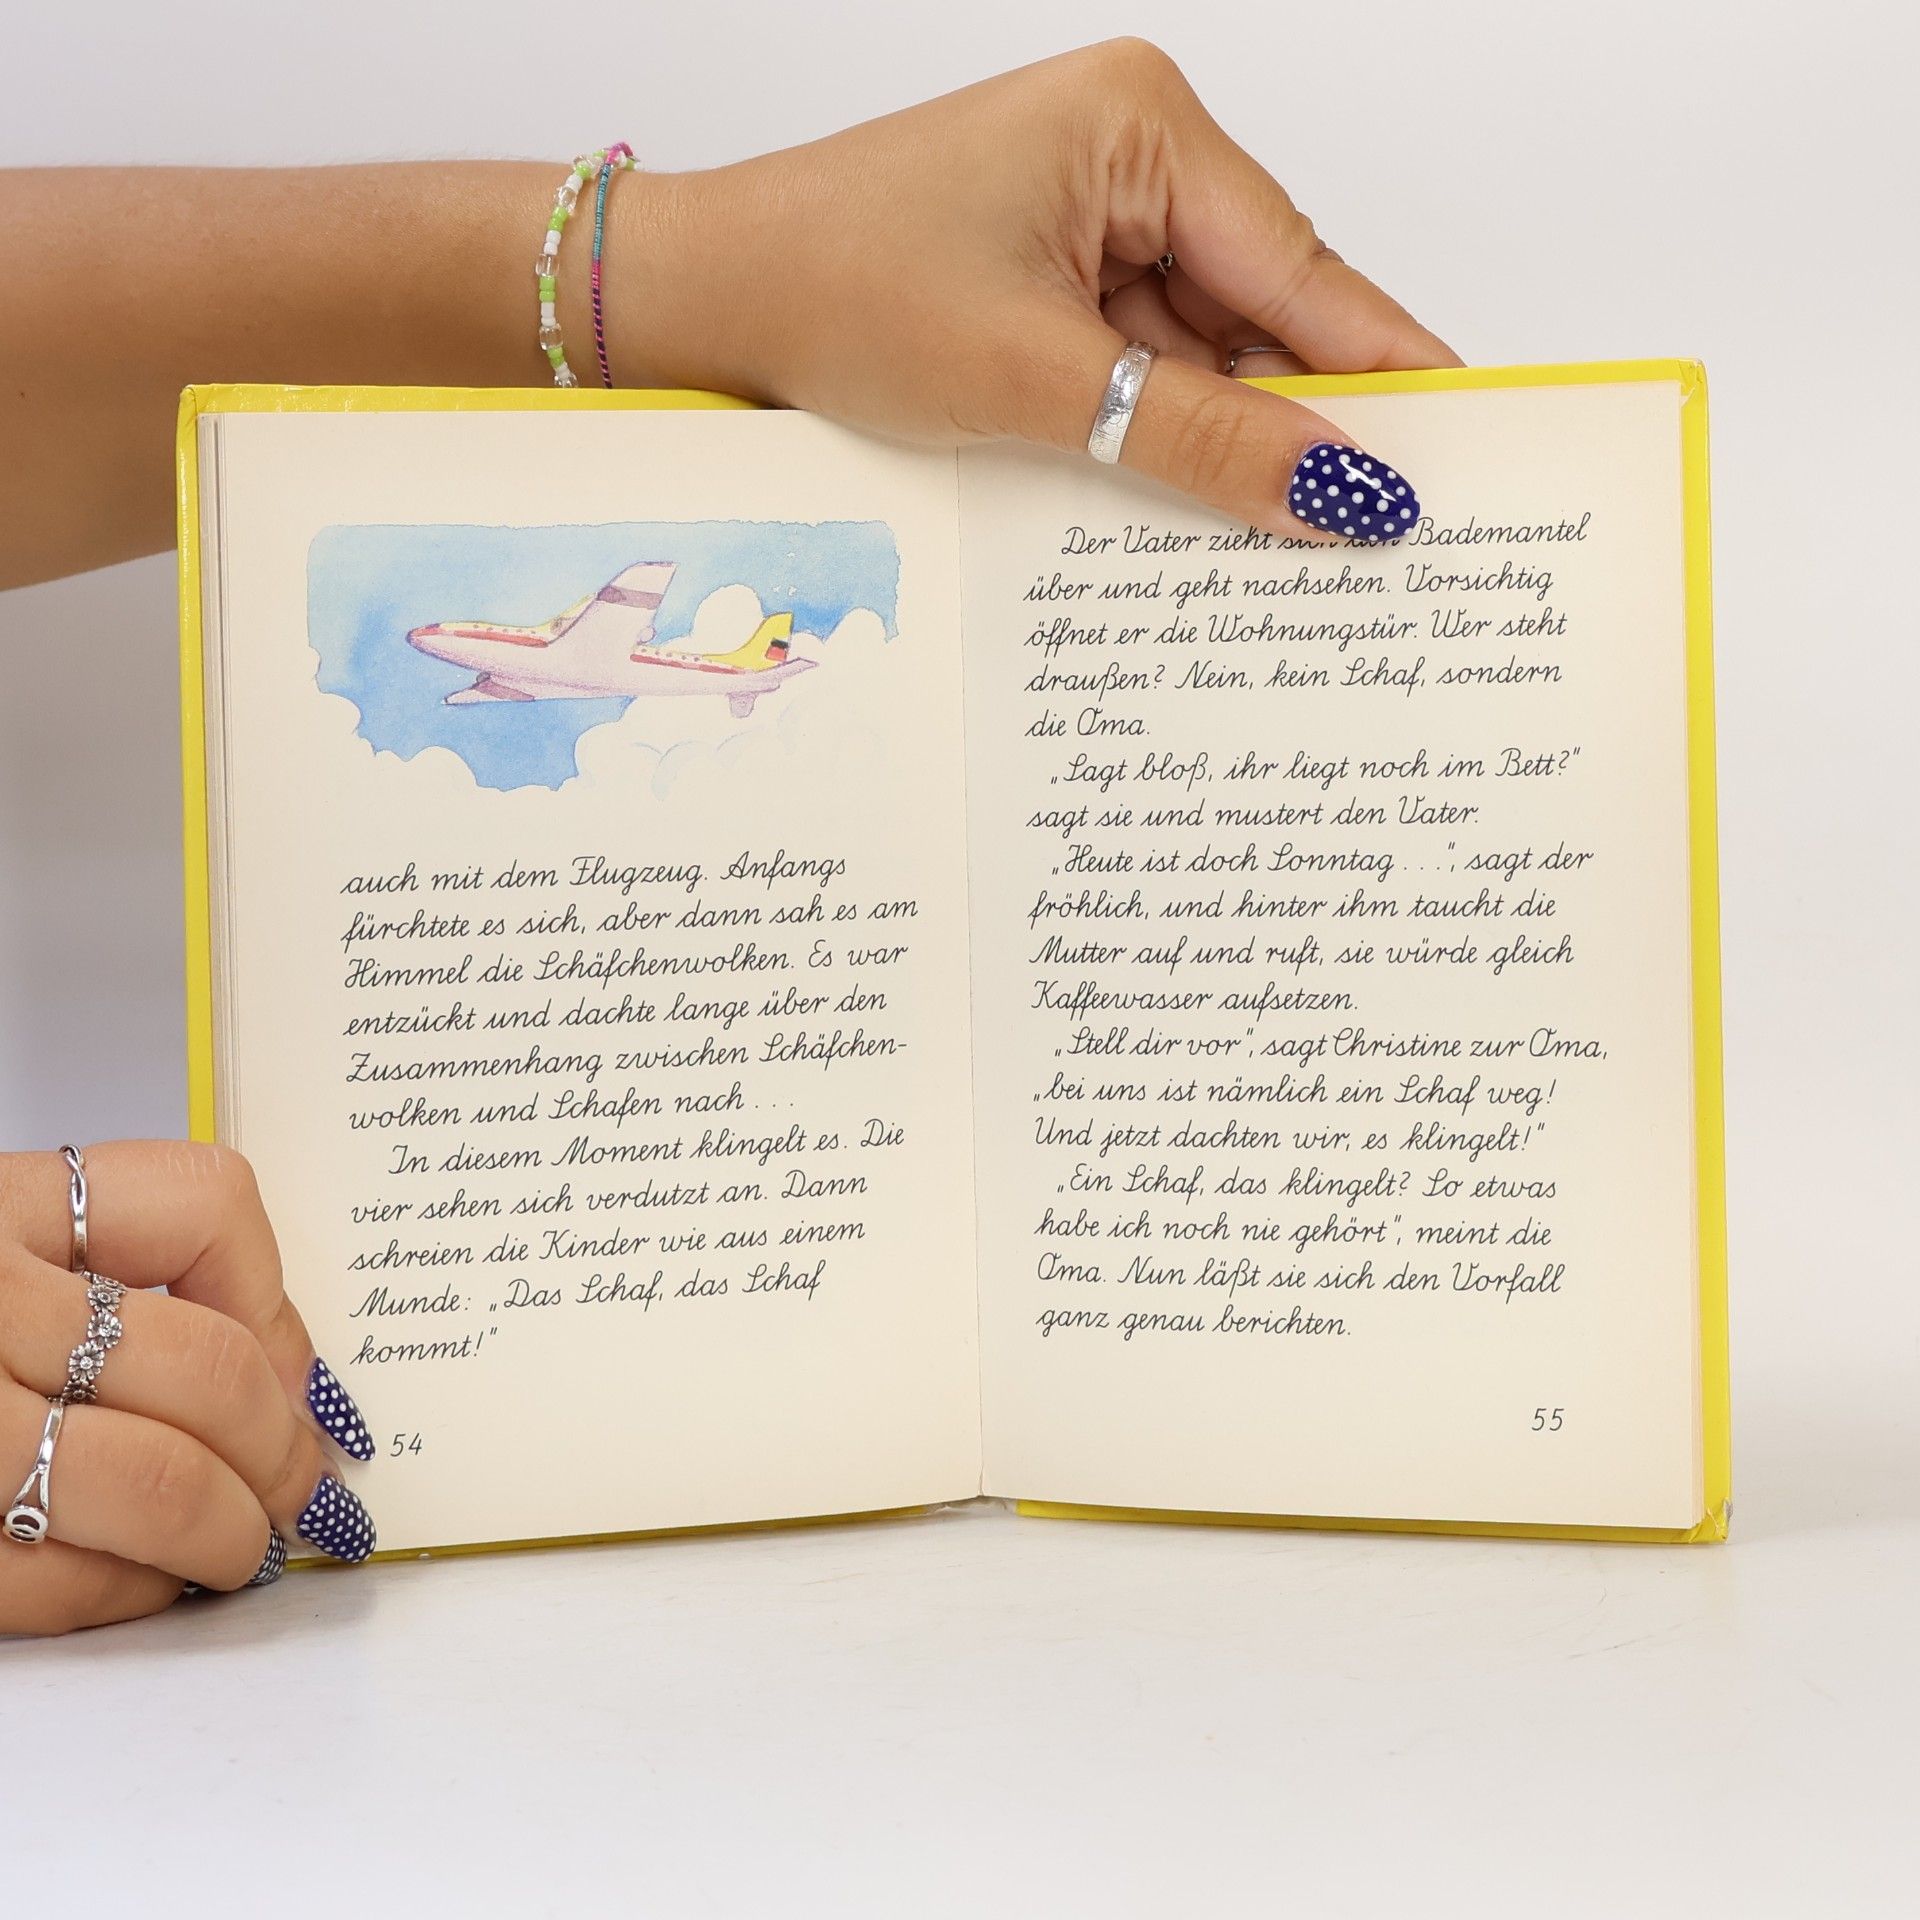 auch mit dem Flugzeug. Anfangs
fürchtete es sich, aber dann sah es am
Himmel die Schäfchenwolken. Es war
entzückt und dachte lange über den
Zusammenhang zwischen Schäfchen-
wolken und Schafen nach . . .
In diesem Moment klingelt es. Die
vier sehen sich verdutzt an. Dann
schreien die Kinder wie aus einem
Munde: „Das Schaf, das Schaf
kommt!"
54
Der Vater zieht sich den Bademantel
über und geht nachsehen. Vorsichtig
öffnet er die Wohnungstür. Wer steht
draußen? Nein, kein Schaf, sondern
die Oma.
„Sagt bloß, ihr liegt noch im Bett?"
sagt sie und mustert den Vater.
„Heute ist doch Sonntag . . .", sagt der
fröhlich, und hinter ihm taucht die
Mutter auf und ruft, sie würde gleich
Kaffeewasser aufsetzen.
„Stell dir vor", sagt Christine zur Oma,
„bei uns ist nämlich ein Schaf weg!
Und jetzt dachten wir, es klingelt!"
„Ein Schaf, das klingelt? So etwas
habe ich noch nie gehört", meint die
Oma. Nun läßt sie sich den Vorfall
ganz genau berichten.
55